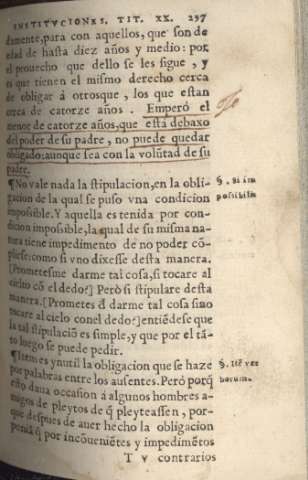 INSTITVCIONES. TIT. XX. 297
damente, para con aquellos, que son de
edad de hasta diez años y medio: por
el prouecho que dello se les sigue, y
es que tienen el mismo derecho cerca
de obligar á otrosque, los que estan
cerca de catorze años. Emperó el
menor de catorze años, que está debaxo
del poder de su padre, no puede quedar
obligado: aunque sea con la volūtad de su
padre.
¶No vale nada la stipulacion, en la obli-
gacion de la qual se puso vna condicion
impossible. Y aquella es tenida por con-
dicion impossible, la qual de su misma na-
tura tiene impedimento de no poder cō-
plirse: como si vno dixesse desta manera.
[Prometesme darme tal cosa, si tocare al
cielo cō el dedo?] Peró si stipulare desta
manera. [Prometes d̄ darme tal cosa sino
tocare al cielo conel dedo?] entiēdese que
la tal stipulació es simple, y que por el tā-
to luego se puede pedir.
¶Item es ynutil la obligacion que se haze
por palabras entre los ausentes. Peró porq̄
esto daua occasion á algunos hombres a-
migos de pleytos de q̄ pleyteassen, por-
que despues de auer hecho la obligacion
ponia q̄ por incōueniētes y impedimētos
T v contrarios
§. Si im
possibilis
§. Itē ver
borum.